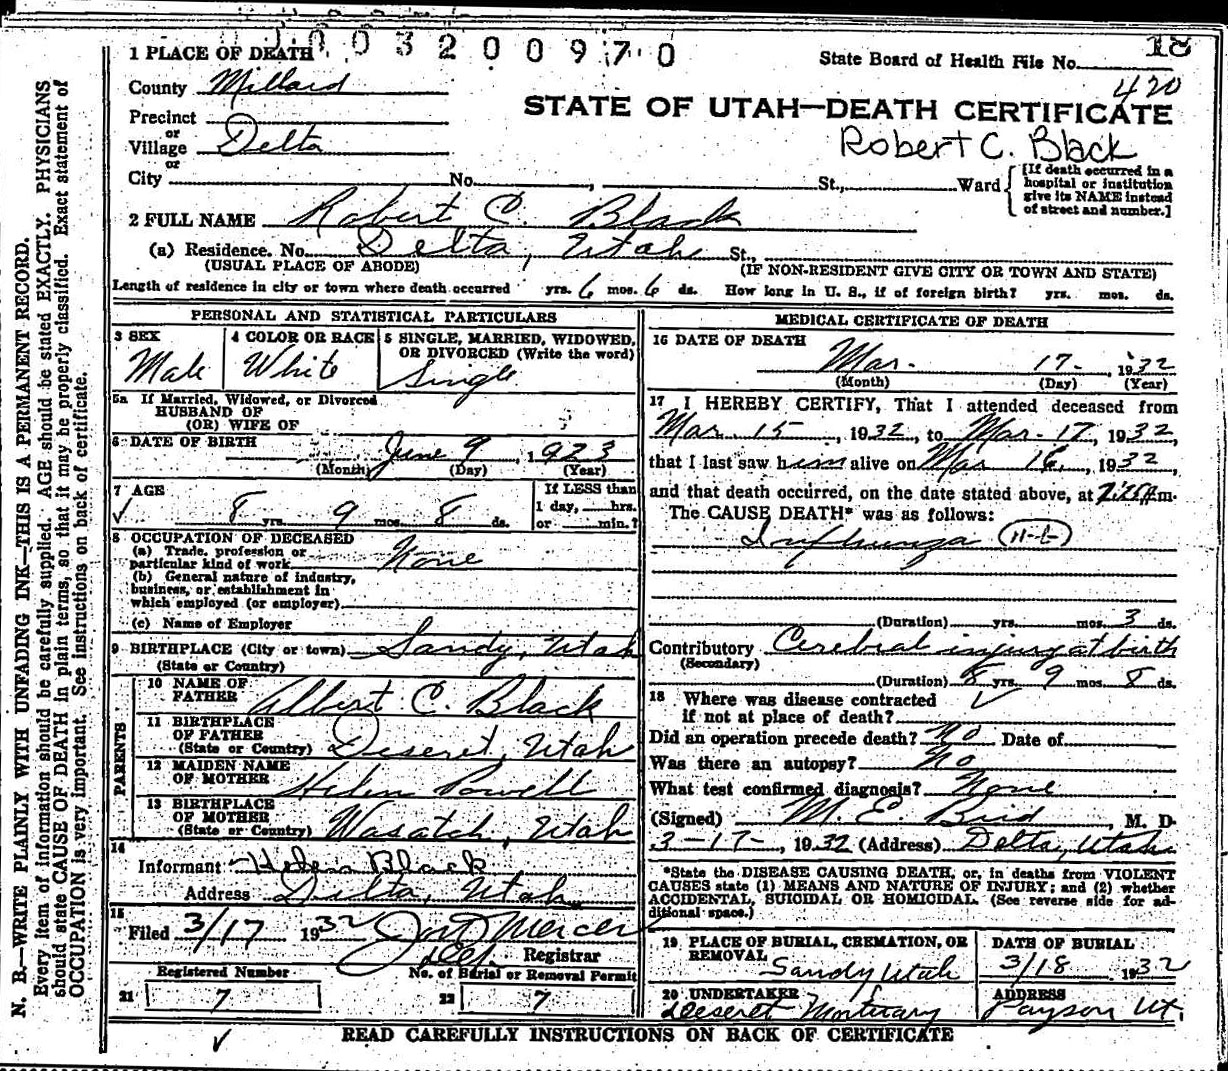 0003200970
18
1 PLACE OF DEATH
State Board of Health File No.
County Millard
420
STATE OF UTAH—DEATH CERTIFICATE
Precinct
or
Village Delta
Robert C. Black
or
City No. , St., Ward
[If death occurred in a
hospital or institution
give its NAME instead
of street and number.]
2 FULL NAME Robert C. Black
(a) Residence. No. Delta, Utah St.,
(USUAL PLACE OF ABODE) (IF NON-RESIDENT GIVE CITY OR TOWN AND STATE)
Length of residence in city or town where death occurred yrs. 6 mos. 6 ds. How long in U. S., if of foreign birth? yrs. mos. ds.
PERSONAL AND STATISTICAL PARTICULARS
3 SEX 4 COLOR OR RACE 5 SINGLE, MARRIED, WIDOWED,
OR DIVORCED (Write the word)
Male White Single
5a If Married, Widowed, or Divorced
HUSBAND OF
(OR) WIFE OF
6 DATE OF BIRTH June 9 1923
(Month) (Day) (Year)
7 AGE If LESS than
1 day, hrs.
8 yrs. 9 mos. 8 ds. or min.?
8 OCCUPATION OF DECEASED
(a) Trade, profession or
particular kind of work None
(b) General nature of industry,
business, or establishment in
which employed (or employer)
(c) Name of Employer
9 BIRTHPLACE (City or town) Sandy, Utah
(State or Country)
PARENTS
10 NAME OF
FATHER Albert C. Black
11 BIRTHPLACE
OF FATHER
(State or Country) Deseret, Utah
12 MAIDEN NAME
OF MOTHER Helen Powell
13 BIRTHPLACE
OF MOTHER
(State or Country) Wasatch, Utah
14
Informant Helen Black
Address Delta, Utah
15
Filed 3/17 1932 Mercer
Registrar
Registered Number No. of Burial or Removal Permit
21 7 22 7
MEDICAL CERTIFICATE OF DEATH
16 DATE OF DEATH
Mar. 17 , 1932
(Month) (Day) (Year)
17 I HEREBY CERTIFY, That I attended deceased from
Mar. 15 , 1932, to Mar. 17, 1932,
that I last saw him alive on Mar 16, 1932,
and that death occurred, on the date stated above, at m.
The CAUSE DEATH* was as follows:
Influenza
(Duration) yrs. mos. 3 ds.
Contributory Cerebral injury at birth
(Secondary)
(Duration) 8 yrs. 9 mos. 8 ds.
18 Where was disease contracted
if not at place of death?
Did an operation precede death? No Date of
Was there an autopsy? No
What test confirmed diagnosis? None
(Signed) M. E. Bird , M. D.
3-17- , 1932 (Address) Delta, Utah
*State the DISEASE CAUSING DEATH, or, in deaths from VIOLENT
CAUSES state (1) MEANS AND NATURE OF INJURY; and (2) whether
ACCIDENTAL, SUICIDAL OR HOMICIDAL. (See reverse side for ad-
ditional space.)
19 PLACE OF BURIAL, CREMATION, OR
REMOVAL
Sandy Utah
DATE OF BURIAL
3/18 1932
20 UNDERTAKER
Deseret Mortuary
ADDRESS
Payson Ut.
READ CAREFULLY INSTRUCTIONS ON BACK OF CERTIFICATE
N. B.—WRITE PLAINLY WITH UNFADING INK—THIS IS A PERMANENT RECORD.
Every item of information should be carefully supplied. AGE should be stated EXACTLY. PHYSICIANS
should state CAUSE OF DEATH in plain terms, so that it may be properly classified. Exact statement of
OCCUPATION is very important. See instructions on back of certificate.